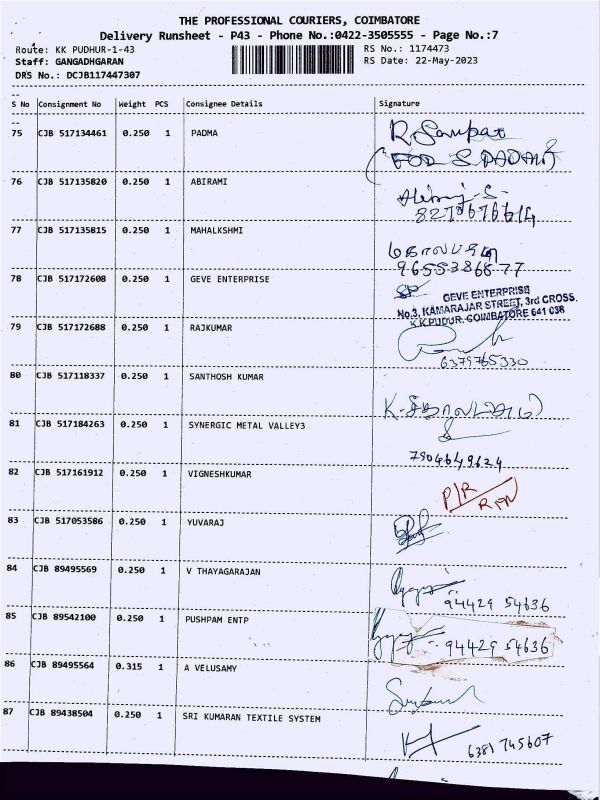 THE PROFESSIONAL COURIERS, COIMBATORE
Delivery Runsheet - P43 - Phone No.:0422-3505555 - Page No.:7
Route: KK PUDHUR-1-43
RS No.: 1174473
Staff: GANGADHGARAN
RS Date: 22-May-2023
DRS No.: DCJB117447307
S No Consignment No Weight PCS Consignee Details Signature
75 CJB 517134461 0.250 1 PADMA R. Sampat
(FOR S.
76 CJB 517135820 0.250 1 ABIRAMI
8278676614
77 CJB 517135815 0.250 1 MAHALKSHMI
9655386877
78 CJB 517172608 0.250 1 GEVE ENTERPRISE
GEVE ENTERPRISE
No.3, KAMARAJAR STREET, 3rd CROSS.
K.K.PUDUR, COIMBATORE 641 038
79 CJB 517172688 0.250 1 RAJKUMAR
6379765330
80 CJB 517118337 0.250 1 SANTHOSH KUMAR
81 CJB 517184263 0.250 1 SYNERGIC METAL VALLEY3
7904649624
82 CJB 517161912 0.250 1 VIGNESHKUMAR
P/R
83 CJB 517053586 0.250 1 YUVARAJ
84 CJB 89495569 0.250 1 V THAYAGARAJAN
94429 54636
85 CJB 89542100 0.250 1 PUSHPAM ENTP
94429 54636
86 CJB 89495564 0.315 1 A VELUSAMY
87 CJB 89438504 0.250 1 SRI KUMARAN TEXTILE SYSTEM
6381745607